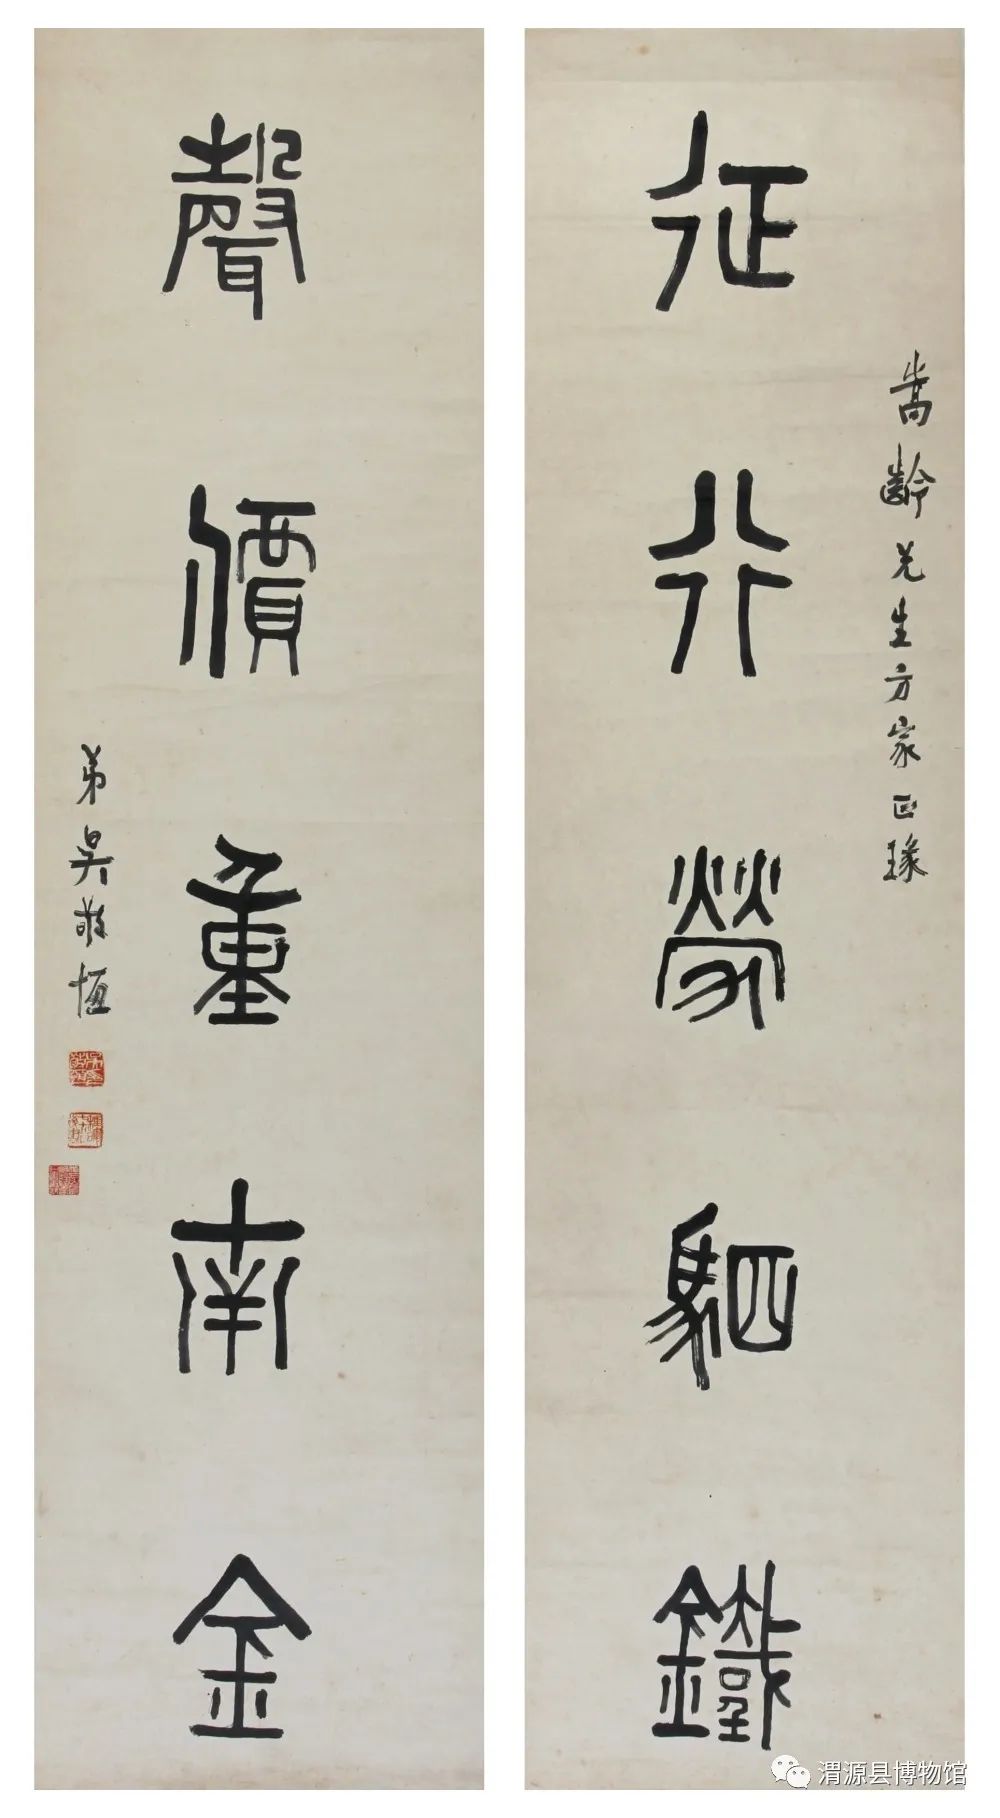 征行勞駟鐵
嵩齡先生方家正瑑
聲價重南金
弟吳敬恒
渭源县博物馆